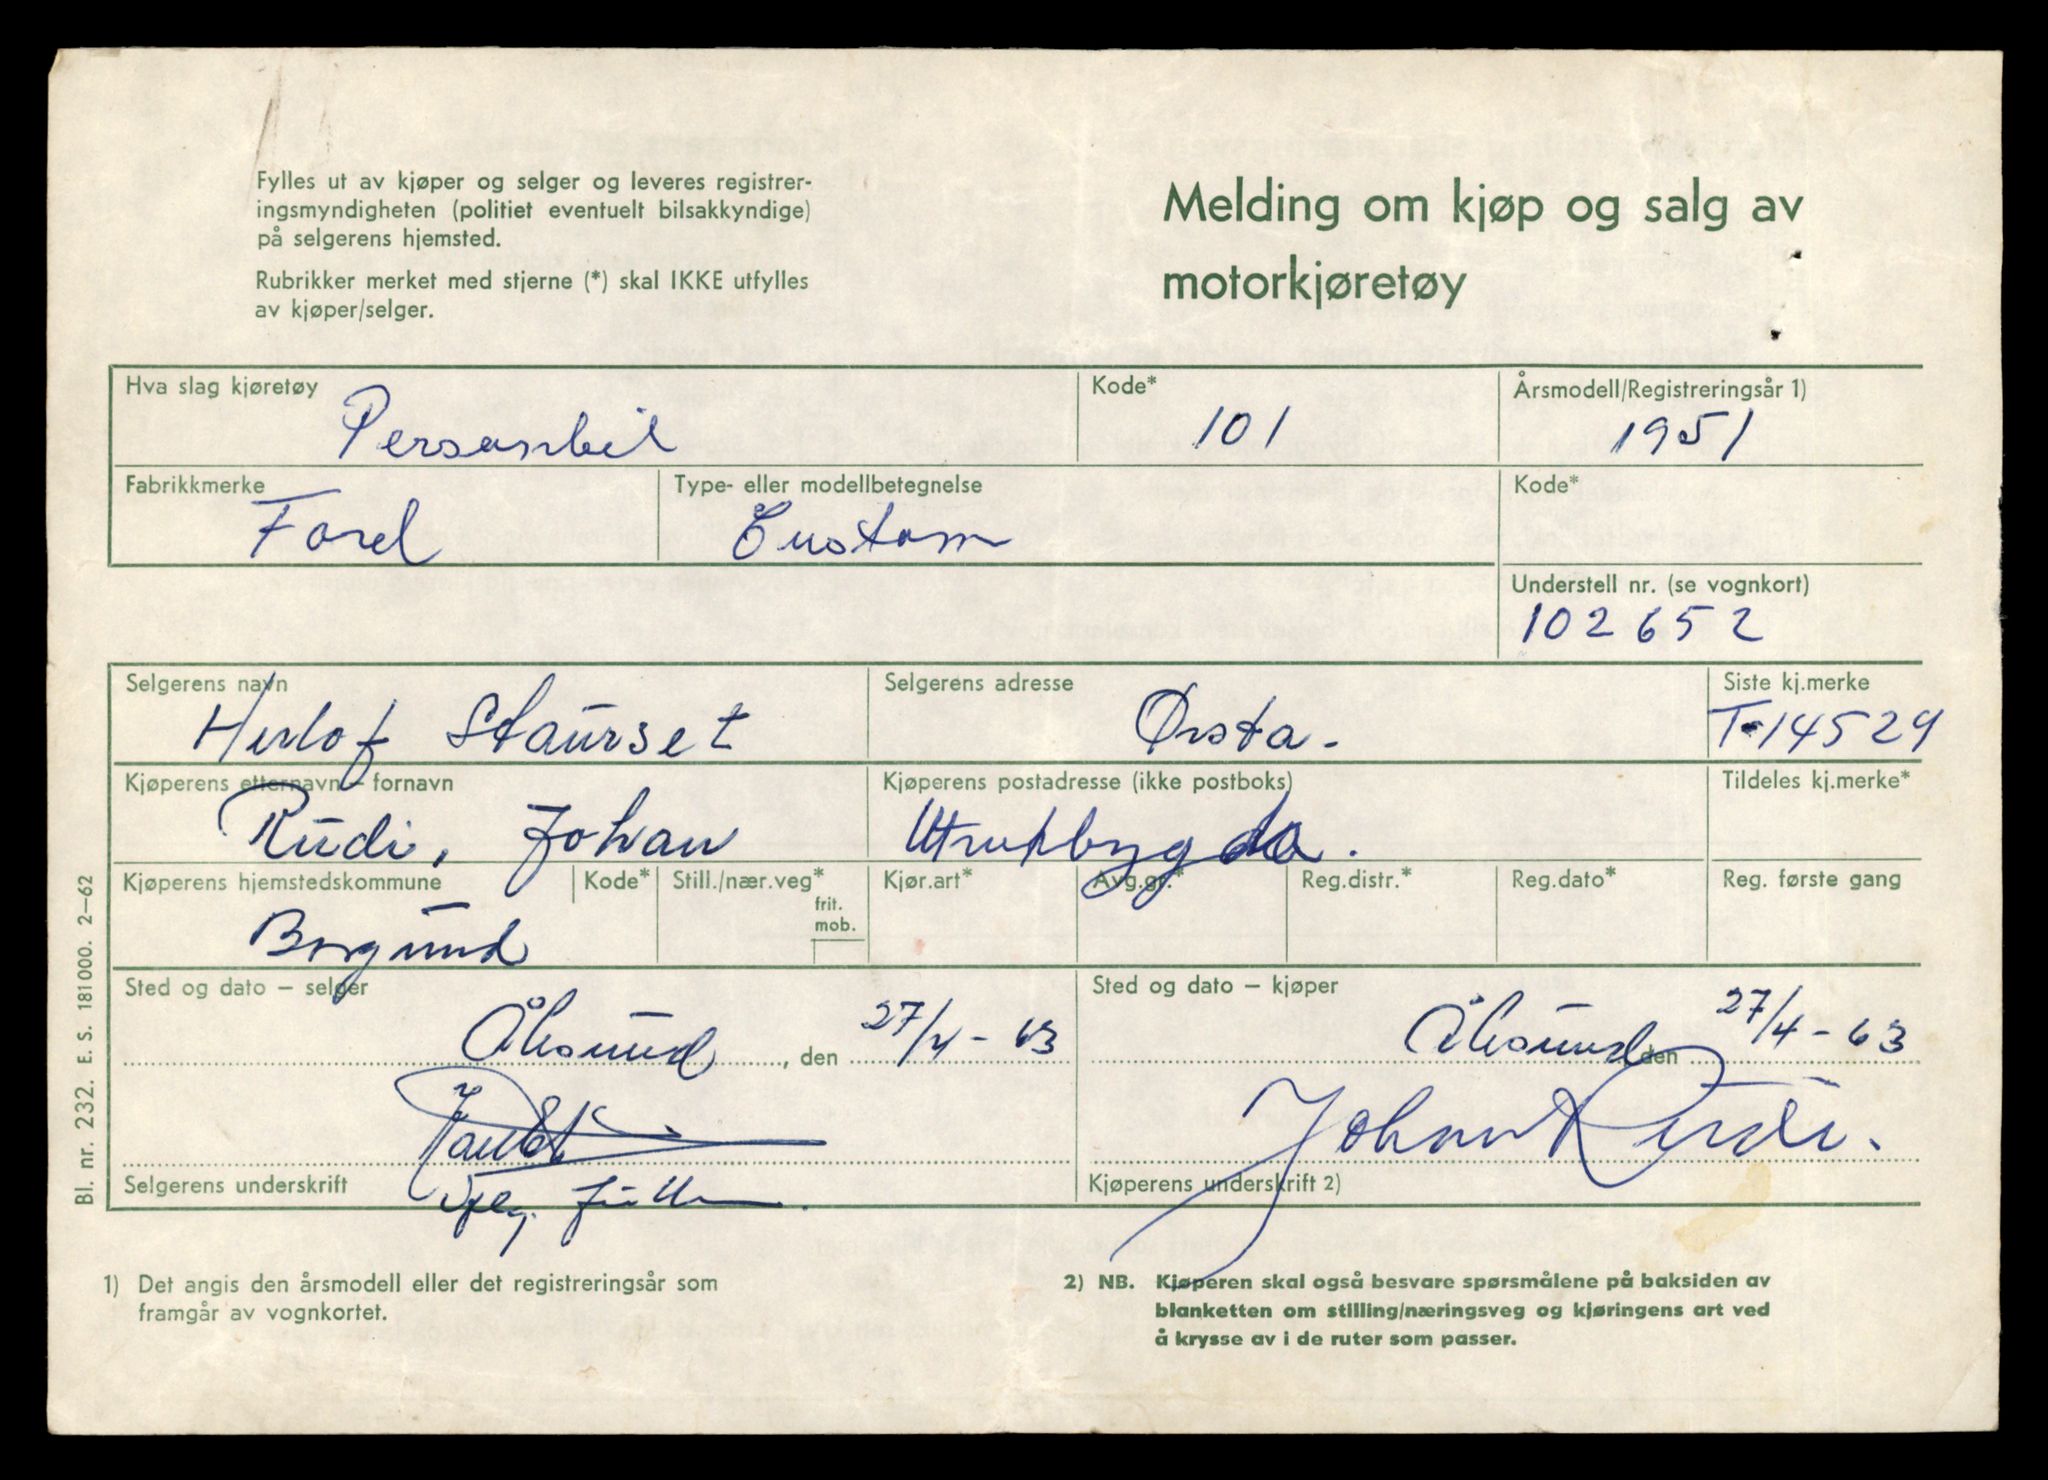 Fylles ut av kjøper og selger og leveres registrer-
ingsmyndigheten (politiet eventuelt bilsakkyndige)
på selgerens hjemsted.
Rubrikker merket med stjerne (*) skal IKKE utfylles
av kjøper/selger.
Melding om kjøp og salg av
motorkjøretøy
Hva slag kjøretøy
Personbil
Kode*
101
Årsmodell/Registreringsår 1)
1951
Fabrikkmerke
Ford
Type- eller modellbetegnelse
Custom
Kode*
Understell nr. (se vognkort)
102652
Selgerens navn
Herlof Staurset
Selgerens adresse
Ørsta.
Siste kj.merke
T-14529
Kjøperens etternavn – fornavn
Rudi, Johan
Kjøperens postadresse (ikke postboks)
Tildeles kj.merke*
Kjøperens hjemstedskommune
Borgund
Kode*
Still./nær.veg*
frit.
mob.
Kjør.art*
Avg.gr.*
Reg.distr.*
Reg.dato*
Reg. første gang
Sted og dato – selger
Ålesund, den 27/4-63
Sted og dato – kjøper
Ålesund, den 27/4-63
Selgerens underskrift
Johan Rudi.
Kjøperens underskrift 2)
1) Det angis den årsmodell eller det registreringsår som
framgår av vognkortet.
2) NB. Kjøperen skal også besvare spørsmålene på baksiden av
blanketten om stilling/næringsveg og kjøringens art ved
å krysse av i de ruter som passer.
Bl. nr. 232. E. S. 181000. 2–62